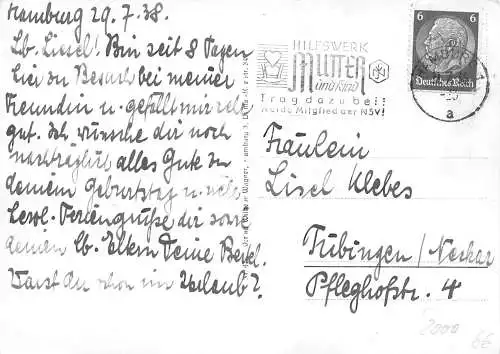 Hamburg 29.7.38.
Lb. Liesel! Bin seit 8 Tagen
hier zu Besuch bei meiner
Freundin u. gefällt mir sehr
gut. Ich wünsche dir noch
nachträglich alles Gute zu
deinem Geburtstag u. viele
herzl. Feriengrüße dir sowie
deinen lb. Eltern Deine Bertl.
Warst du schon im Urlaub?
HILFSWERK
MUTTER
und Kind
Trag dazu bei:
Werde Mitglied der NSV!
6 6
Deutsches Reich
a
Fräulein
Lisel Klebes
Tübingen/Neckar
Pfleghofstr. 4
2000
6€